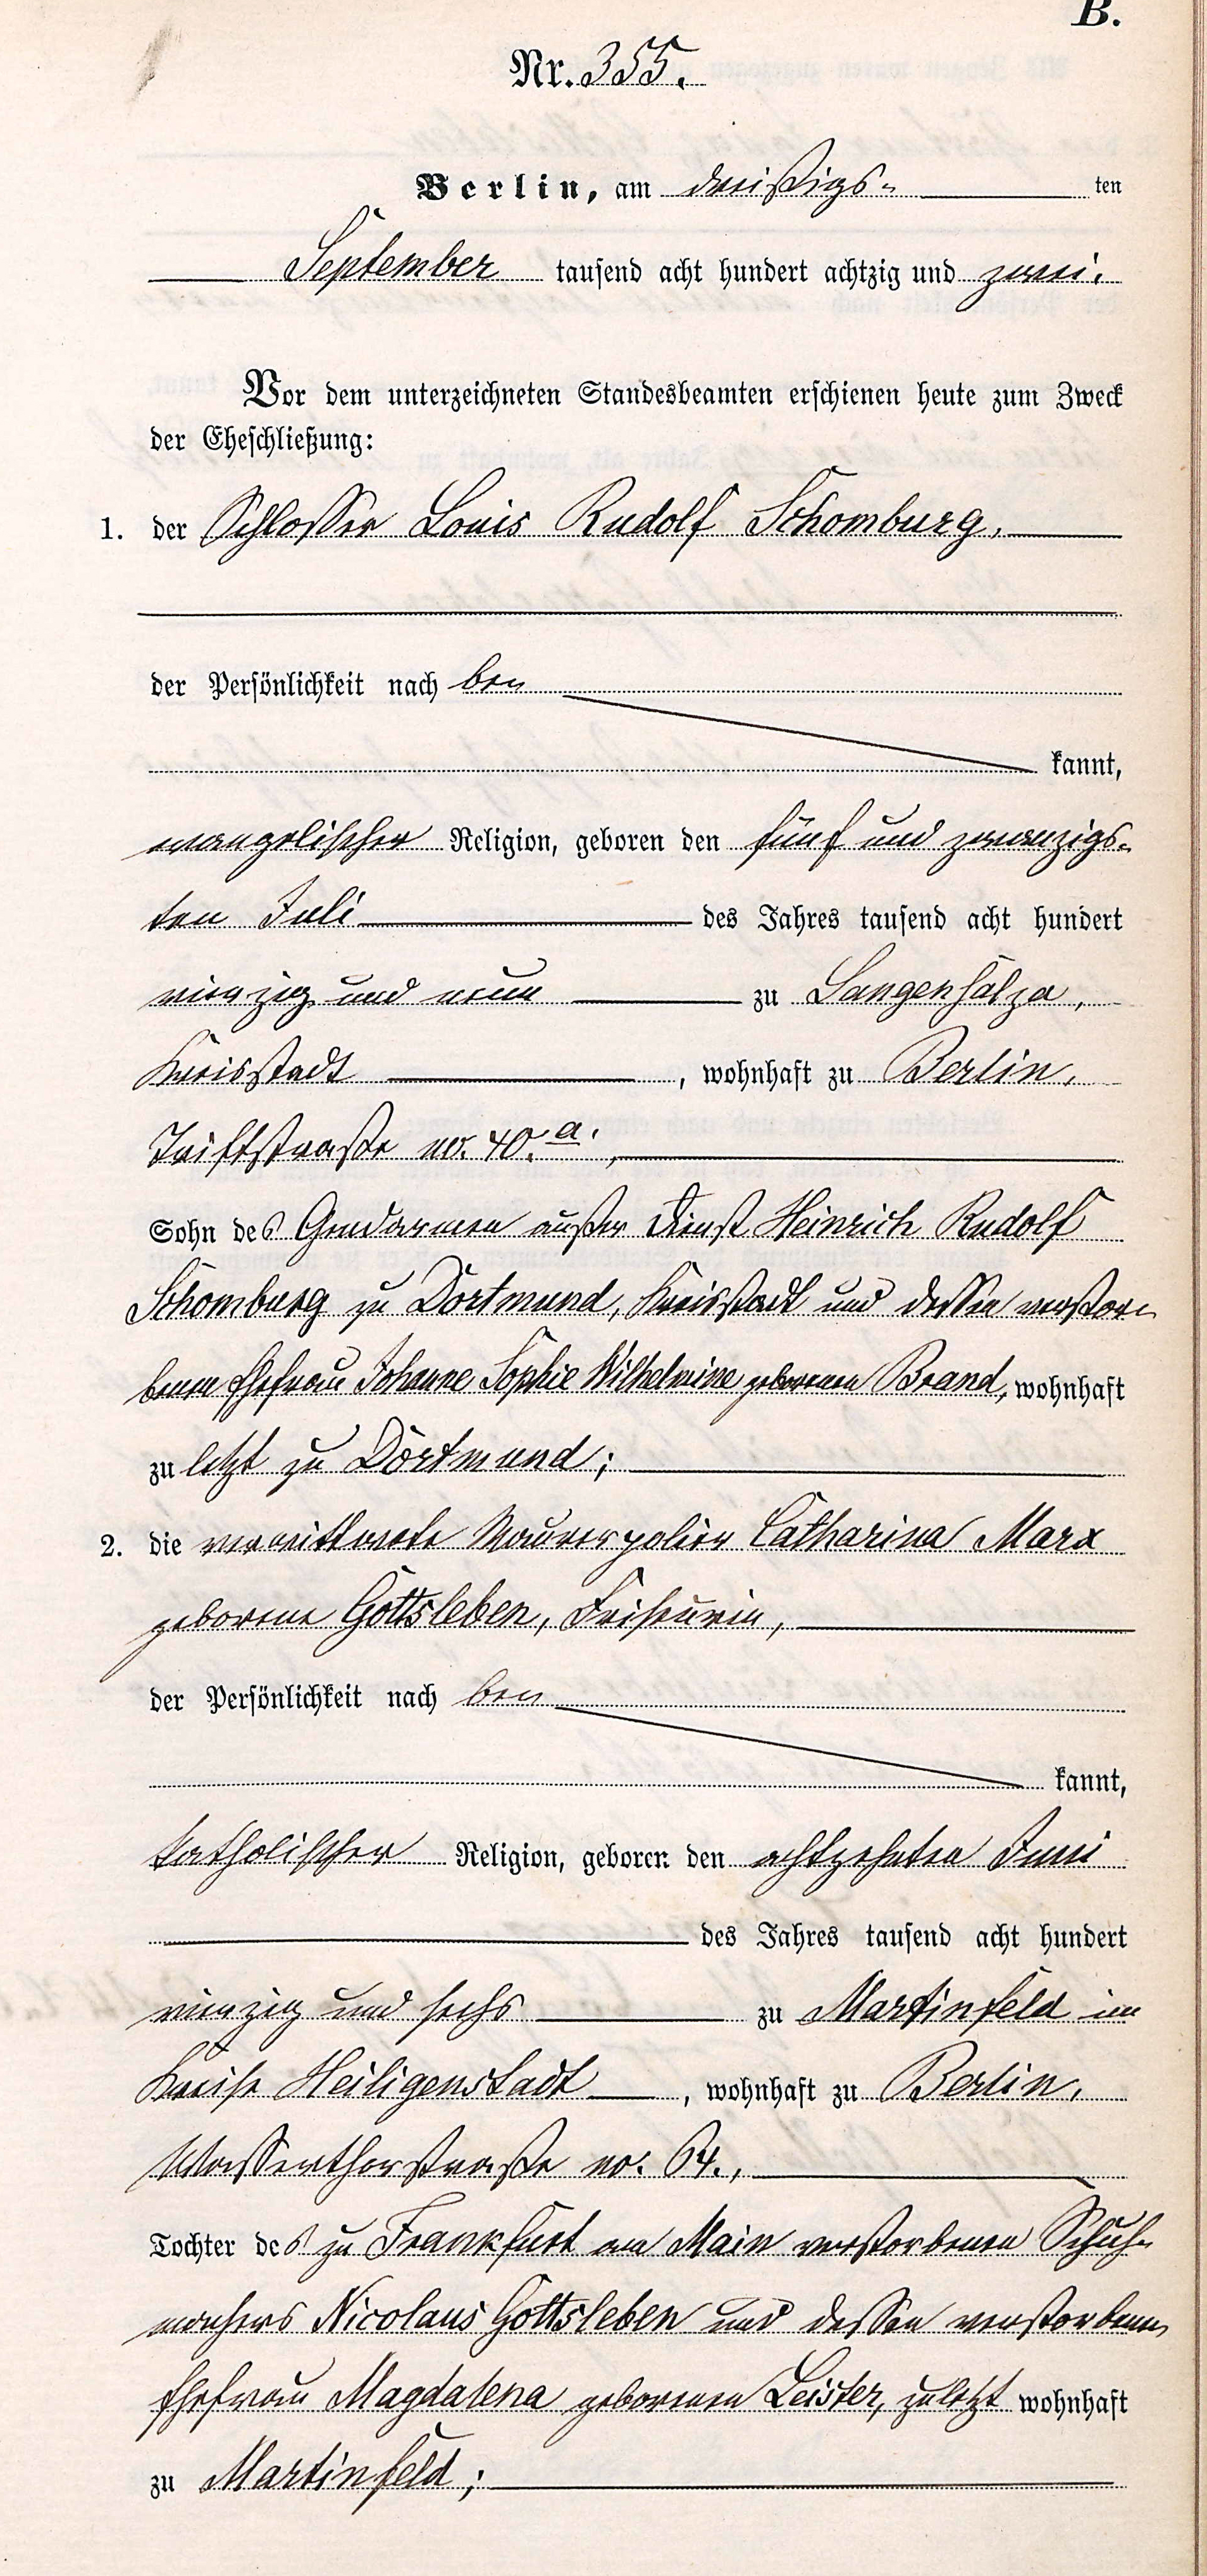 B.
Nr. 355.
Berlin, am dreißigs- ten
September tausend acht hundert achtzig und zwei.
Vor dem unterzeichneten Standesbeamten erschienen heute zum Zweck
der Eheschließung:
1. der Schlosser Louis Rudolf Schomburg,
der Persönlichkeit nach be
kannt,
evangelischer Religion, geboren den fünf und zwanzigs-
ten Juli des Jahres tausend acht hundert
vierzig und neun zu Langensalza,
Kreisstadt, wohnhaft zu Berlin,
Triftstraße no. 40.a.,
Sohn des Gendarmen außer Dienst Heinrich Rudolf
Schomburg zu Dortmund, Kreisstadt und dessen verstor-
benen Ehefrau Johanne Sophie Wilhelmine geborenen Brand, wohnhaft
zuletzt zu Dortmund;
2. die verwittwete Maurerpolier Catharina Marx
geborene Gottsleben, Friseurin,
der Persönlichkeit nach be
kannt,
katholischer Religion, geboren den achtzehnten Juni
des Jahres tausend acht hundert
vierzig und sechs zu Martinfeld im
Kreise Heiligenstadt, wohnhaft zu Berlin,
Wasserthorstraße no. 64.,
Tochter des zu Frankfurt am Main verstorbenen Schuh-
machers Nicolaus Gottsleben und dessen verstorbenen
Ehefrau Magdalena geborenen Leister, zuletzt wohnhaft
zu Martinfeld;